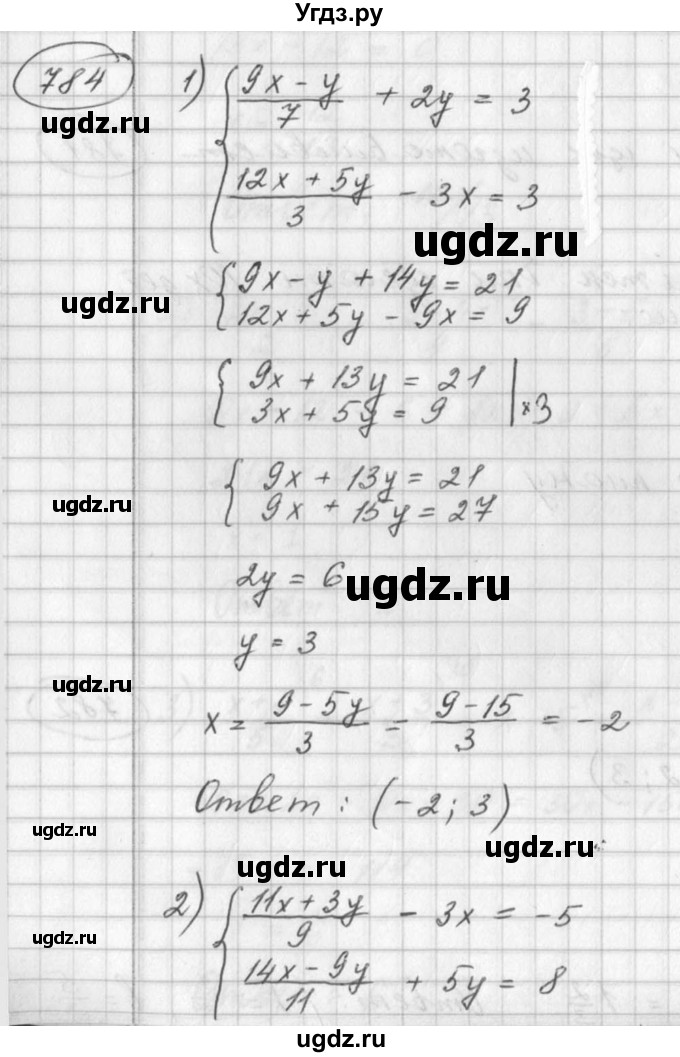 Угдз.ру
784
ugdz.ru
1) { (9x - y)/7 + 2y = 3
(12x + 5y)/3 - 3x = 3
ugdz.ru
ugdz.ru
{ 9x - y + 14y = 21
12x + 5y - 9x = 9
{ 9x + 13y = 21
3x + 5y = 9 | ×3
{ 9x + 13y = 21
9x + 15y = 27
ugdz.ru
ugdz.ru
2y = 6
ugdz.ru
y = 3
ugdz.ru
x = (9 - 5y)/3 = (9 - 15)/3 = -2
Ответ: (-2; 3)
ugdz.ru
ugdz.ru
ugdz.ru
2) { (11x + 3y)/9 - 3x = -5
ugdz.ru
(14x - 9y)/11 + 5y = 8
Угдз.ру